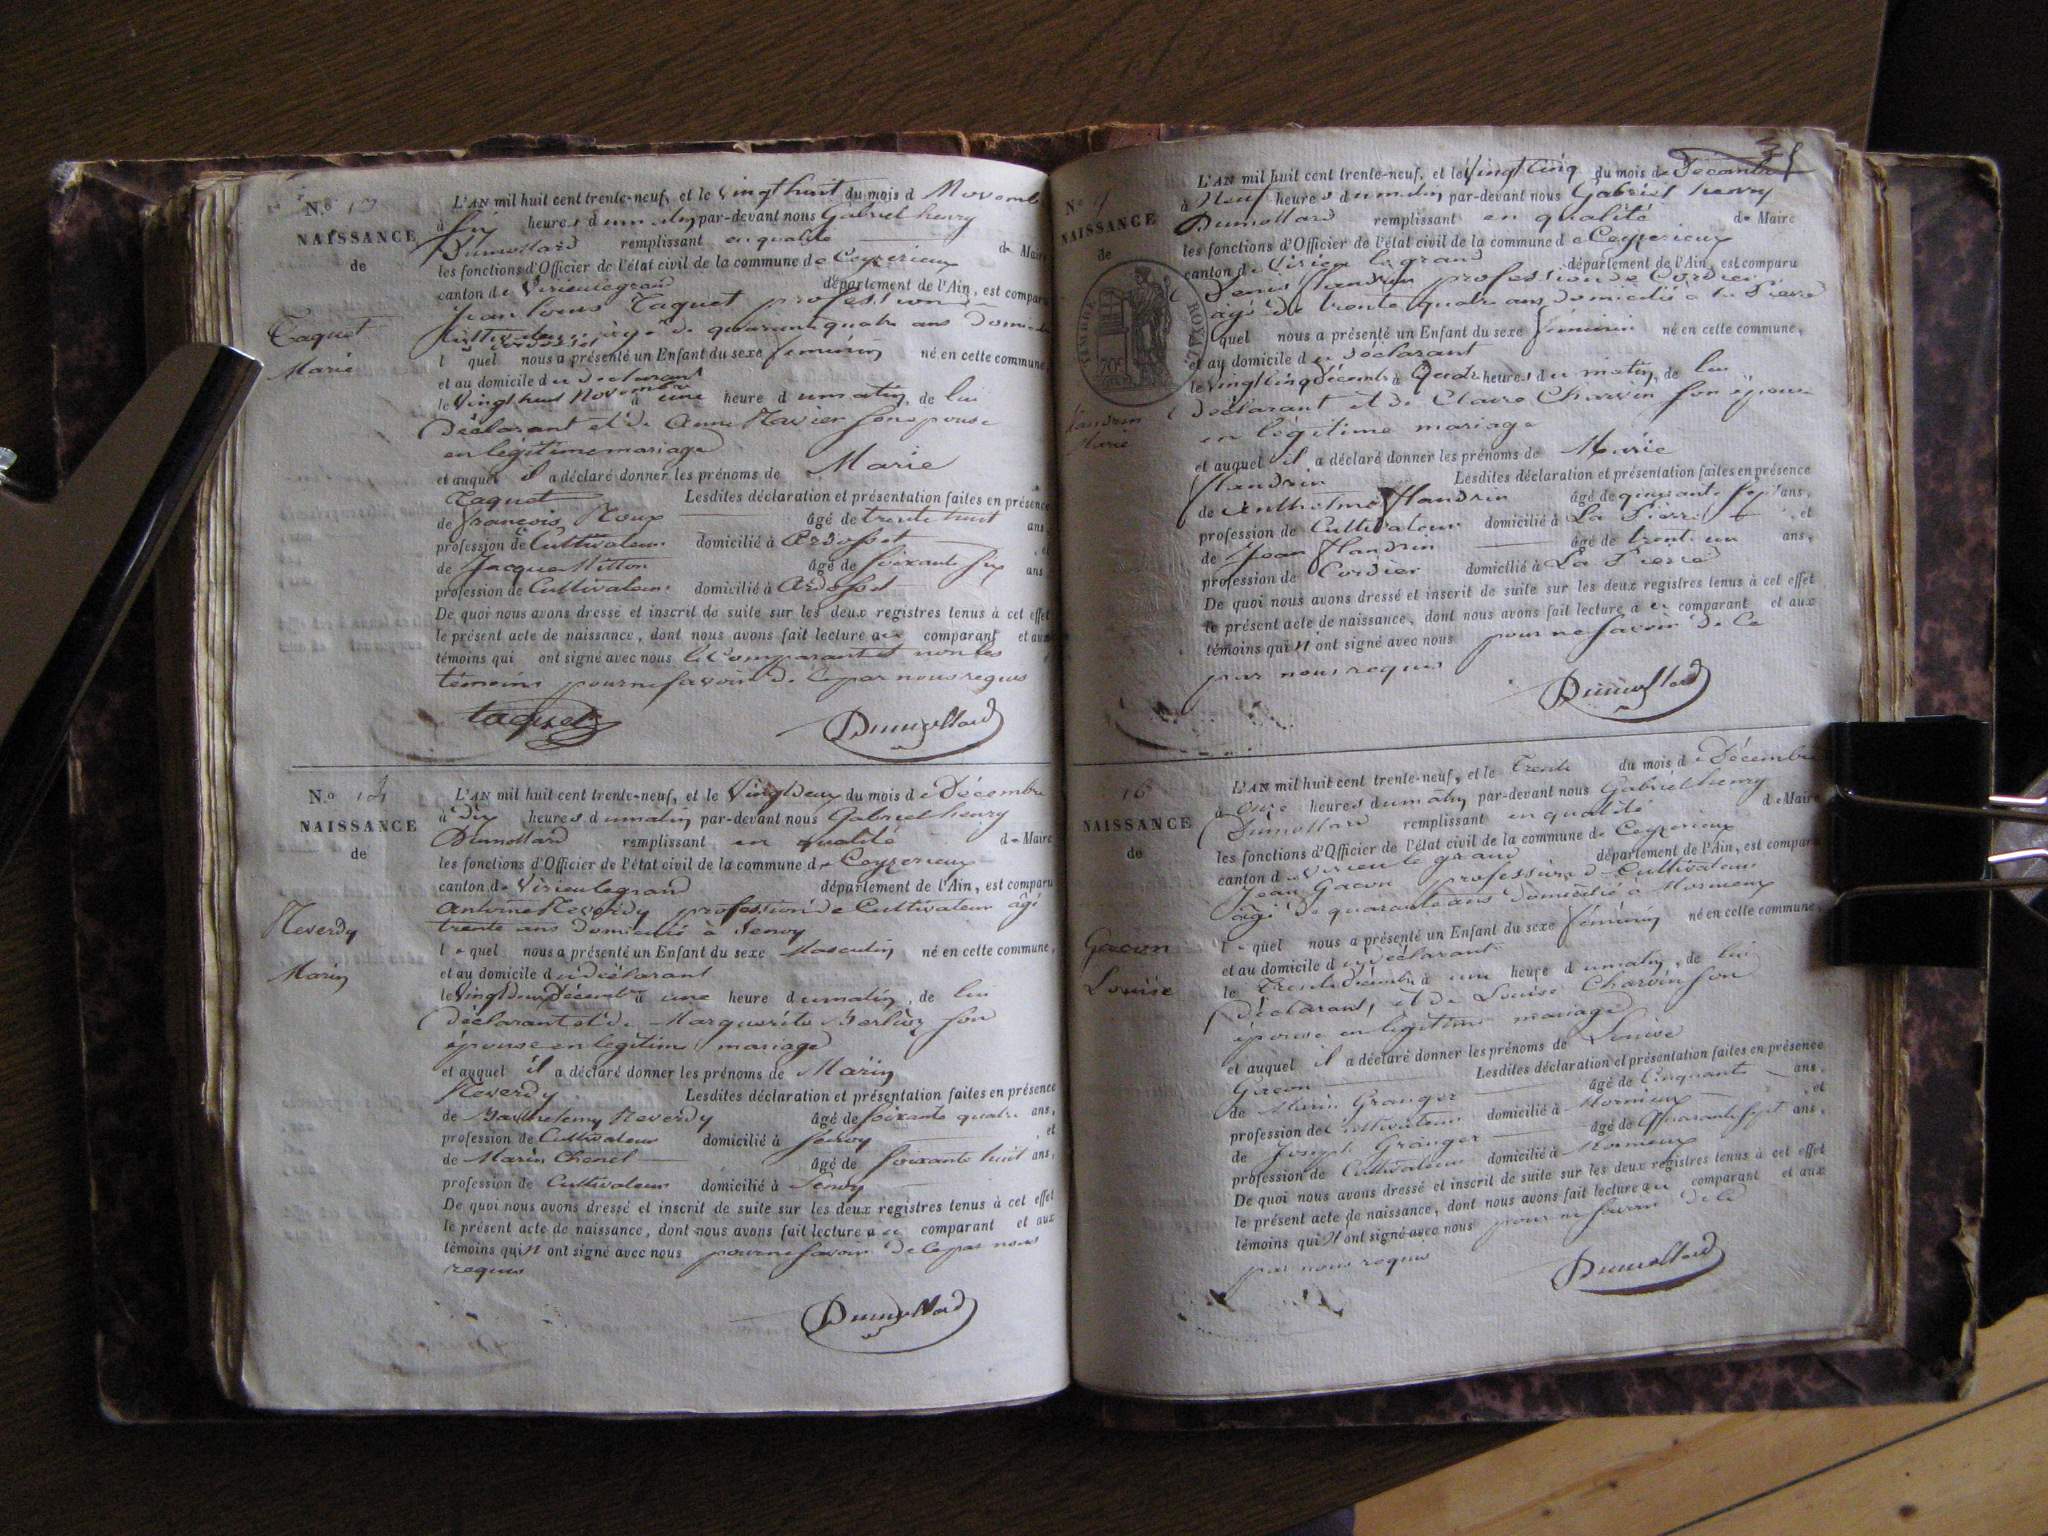 N.o 13
NAISSANCE
de
Taquet
Marie
L'AN mil huit cent trente-neuf, et le Vingt huit du mois d Novembre
à six heures du matin par-devant nous Gabriel henry
Dumollard remplissant en qualité de Maire
les fonctions d'Officier de l'état civil de la commune de Ceyzerieux
canton de Virieulegrand département de l'Ain, est comparu
Jean Louis Taquet profession
Cultivateur âgé de quarante quatre ans domicilié
l quel nous a présenté un Enfant du sexe féminin né en cette commune,
et au domicile du declarant
le Vingt huit Novembre à une heure du matin, de lui
déclarant et de Anne Navier son epouse
en légitime mariage
et auquel il a déclaré donner les prénoms de Marie
Taquet Lesdites déclaration et présentation faites en présence
de françois Roux âgé de trente huit ans,
profession de Cultivateur domicilié à Ardosset et
de Jacque Mitton âgé de soixante six ans
profession de Cultivateur domicilié à Ardosset
De quoi nous avons dressé et inscrit de suite sur les deux registres tenus à cet effet
le présent acte de naissance, dont nous avons fait lecture aux comparant et aux
témoins qui ont signé avec nous le Comparant et non les
témoins pour ne savoir de Ce par nous requis
taquet Dumollard
N.o 14
NAISSANCE
de
Reverdy
Marin
L'AN mil huit cent trente-neuf, et le Vingt deux du mois de Décembre
à Dix heures du matin par-devant nous Gabriel henry
Dumollard remplissant en qualité de Maire
les fonctions d'Officier de l'état civil de la commune de Ceyzerieux
canton de Virieulegrand département de l'Ain, est comparu
Antoine Reverdy profession de Cultivateur âgé
trente ans domicilié à Senoy
le quel nous a présenté un Enfant du sexe Masculin né en cette commune,
et au domicile du déclarant
le Vingt deux Décembre à une heure du matin, de lui
déclarant et de Marguerite Berlioz son
épouse en légitime mariage
et auquel il a déclaré donner les prénoms de Marin
Reverdy Lesdites déclaration et présentation faites en présence
de Barthelemy Reverdy âgé de soixante quatre ans,
profession de Cultivateur domicilié à Senoy et
de Marin Chenel âgé de soixante huit ans,
profession de Cultivateur domicilié à Senoy
De quoi nous avons dressé et inscrit de suite sur les deux registres tenus à cet effet
le présent acte de naissance, dont nous avons fait lecture a ce comparant et aux
témoins qui n'ont signé avec nous pour ne savoir de Ce par nous
requis
Dumollard
N.o
NAISSANCE
de
TIMBRE ROYAL
flandrin
Marie
L'AN mil huit cent trente-neuf, et le Vingt Cinq du mois de Décembre
à Neuf heures du matin par-devant nous Gabriel henry
Dumollard remplissant en qualité de Maire
les fonctions d'Officier de l'état civil de la commune de Ceyzerieux
canton de Virieu le grand département de l'Ain, est comparu
Denis flandrin profession de Cordier
âgé de trente quatre ans domicilié à la Pierre
quel nous a présenté un Enfant du sexe féminin né en cette commune,
et au domicile du déclarant
le Vingt Cinq Décembre à Quatre heures du matin, de lui
déclarant et de Claire Charvin son épouse
en légitime mariage
et auquel il a déclaré donner les prénoms de Marie
flandrin Lesdites déclaration et présentation faites en présence
de Anthelme flandrin âgé de cinquante sept ans,
profession de Cultivateur domicilié à La Pierre et
de Jean flandrin âgé de trente un ans,
profession de Cordier domicilié à La Pierre
De quoi nous avons dressé et inscrit de suite sur les deux registres tenus à cet effet
le présent acte de naissance, dont nous avons fait lecture à ce comparant et aux
témoins qui N'ont signé avec nous pour ne savoir de Ce
par nous requis
Dumollard
16
NAISSANCE
de
Gacon
Louise
L'AN mil huit cent trente-neuf, et le Trente du mois de Décembre
à onze heures du matin par-devant nous Gabriel henry
Dumollard remplissant en qualité de Maire
les fonctions d'Officier de l'état civil de la commune de Ceyzerieux
canton de Virieu le grand département de l'Ain, est comparu
Jean Gacon profession de Cultivateur
âgé de quarante ans domicilié à Mornieux
le quel nous a présenté un Enfant du sexe féminin né en cette commune,
et au domicile du déclarant
le Trente Décembre à une heure du matin, de lui
déclarant, et de Louise Charvin son
épouse en légitime mariage
et auquel il a déclaré donner les prénoms de Louise
Gacon Lesdites déclaration et présentation faites en présence
de Marin Granger âgé de Cinquante ans,
profession de Cultivateur domicilié à Mornieux et
de Joseph Granger âgé de Quarante sept ans,
profession de Cultivateur domicilié à Mornieux
De quoi nous avons dressé et inscrit de suite sur les deux registres tenus à cet effet
le présent acte de naissance, dont nous avons fait lecture au comparant et aux
témoins qui N'ont signé avec nous pour ne savoir de Ce
par nous requis
Dumollard